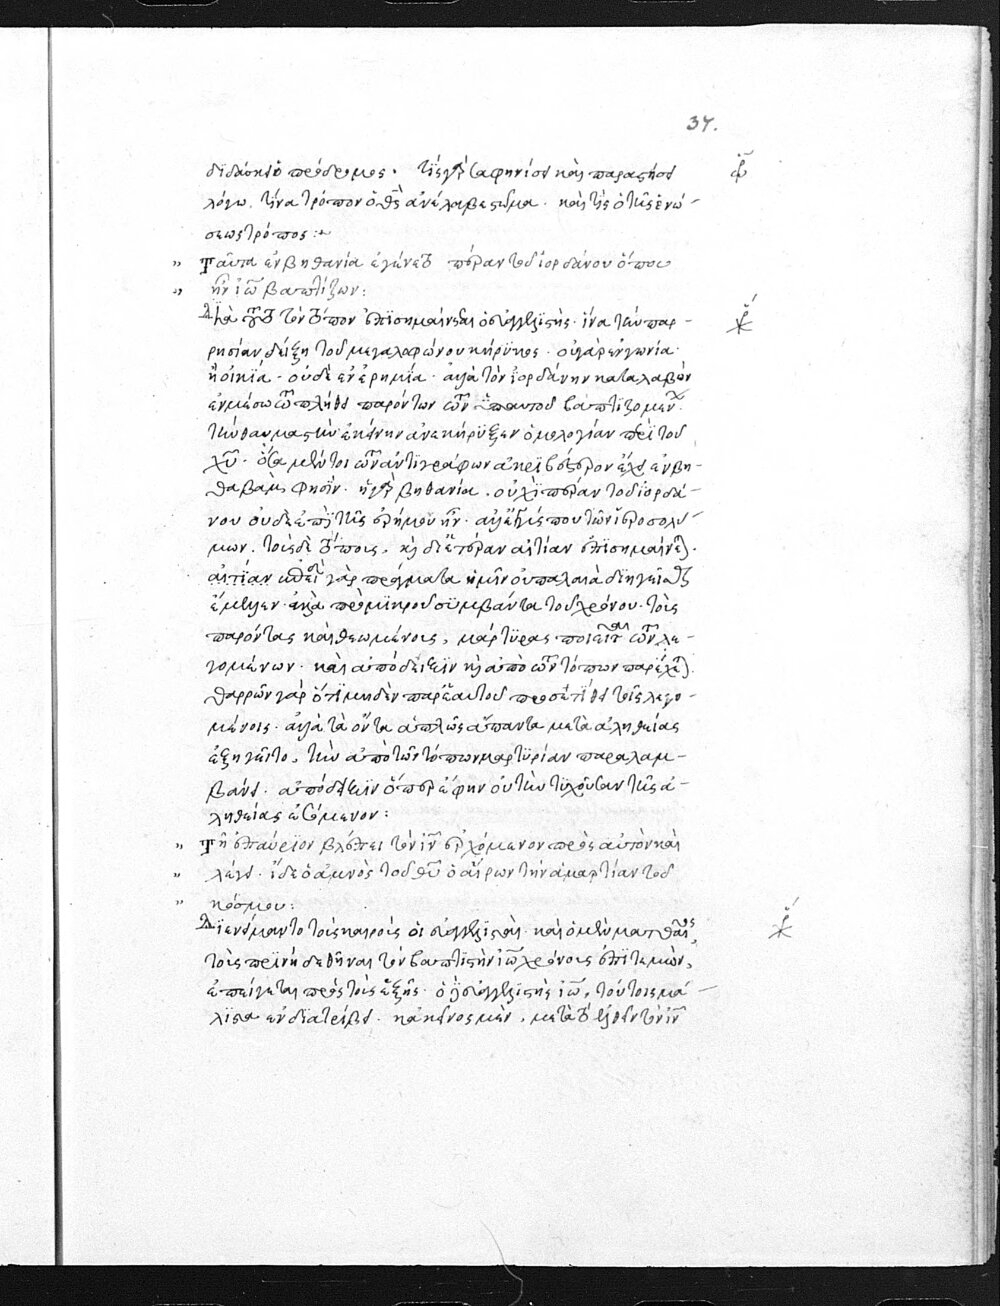 37.
διδάσκει ὁ πρόδρομος · τίς γὰρ σαφηνίσει καὶ παραστήσει
λόγω, τίνα τρόπον ὁ θς ἀνέλαβε σῶμα · καὶ τίς ὁ τῆς ἑνώ-
σεως τρόπος :
" Ταῦτα ἐν βηθανία ἐγένετο πέραν τοῦ ἰορδάνου ὅπου
" ἦν ἰω βαπτίζων :
Διὰ τοῦτο τὸν τόπον ἐπισημαίνεται ὁ εὐαγγελιστὴς · ἵνα τὴν παρ-
ρησίαν δείξη τοῦ μεγαλοφώνου κήρυκος · οὐ γὰρ ἐν γωνία
ἢ οἰκία · οὐδὲ ἐν ἐρημία · ἀλλὰ τὸν ἰορδάνην καταλαβὼν
ἐν μέσω τῶ πλήθει παρόντων τῶν ὑπ' αυτοῦ βαπτιζομένων
τὴν θαυμαστὴν ἐκείνην ἀνεκήρυξεν ὁμολογίαν περὶ τοῦ
χυ · ὅσα μέντοι τῶν ἀντιγράφων ἀκριβέστερον ἔχει ἐν βη-
θαβαρᾶ φησὶν · ἡ γὰρ βηθανία · οὐχὶ πέραν τοῦ ἰορδά-
νου οὐδὲ ἐπὶ τῆς ἐρήμου ἦν · ἀλλ' ἐγγύς που τῶν ἱεροσολύ-
μων · τοὺς δὲ τόπους · καὶ δι' ἑτέραν αἰτίαν ἐπισημαίνεται.
αἰτίαν γὰρ πράγματα ἡμῖν οὐ παλαιὰ διηγεῖσθαι
ἔμελλεν · ἀλλὰ πρὸ μικροῦ συμβάντα τοῦ χρόνου · τοὺς
παρόντας καὶ θεωμένους, μάρτυρας ποιεῖται τῶν λε-
γομένων · καὶ ἀπόδειξιν καὶ ἀπὸ τῶν τόπων παρέχεται.
θαρρῶν γὰρ ὅτι μηδὲν παρ' ἑαυτοῦ προσετίθει τοῖς λεγο-
μένοις · ἀλλὰ τὰ ὄντα ἁπλῶς ἅπαντα μετὰ ἀληθείας
ἐξηγεῖτο, τὴν ἀπὸ τῶν τόπων μαρτυρίαν παραλαμ-
βάνει · ἀπόδειξιν ὅπερ ἔφην οὐ τὴν τυχοῦσαν τῆς ἀ-
ληθείας ἐσόμενον :
" Τῆ ἐπαύριον βλέπει τὸν ιν ἐρχόμενον πρὸς αὐτὸν καὶ
" λέγει · ἴδε ὁ ἀμνὸς τοῦ θυ ὁ αἴρων τὴν ἁμαρτίαν τοῦ
" κόσμου :
Διενείμαντο τοὺς καιροὺς οἱ εὐαγγελισταὶ · καὶ ὁ μὲν ματθαῖος,
τοὺς πρὶν ἢ δεθῆναι τὸν βαπτιστὴν ιω χρόνους ἐπιτεμὼν,
ἐπείγεται πρὸς τοὺς ἑξῆς · ὁ δὲ εὐαγγελιστὴς ιω, τούτοις μά-
λιστα ἐνδιατρίβει · κἀκεῖνος μὲν, μετὰ τὸ ἐλθεῖν τὸν ιν